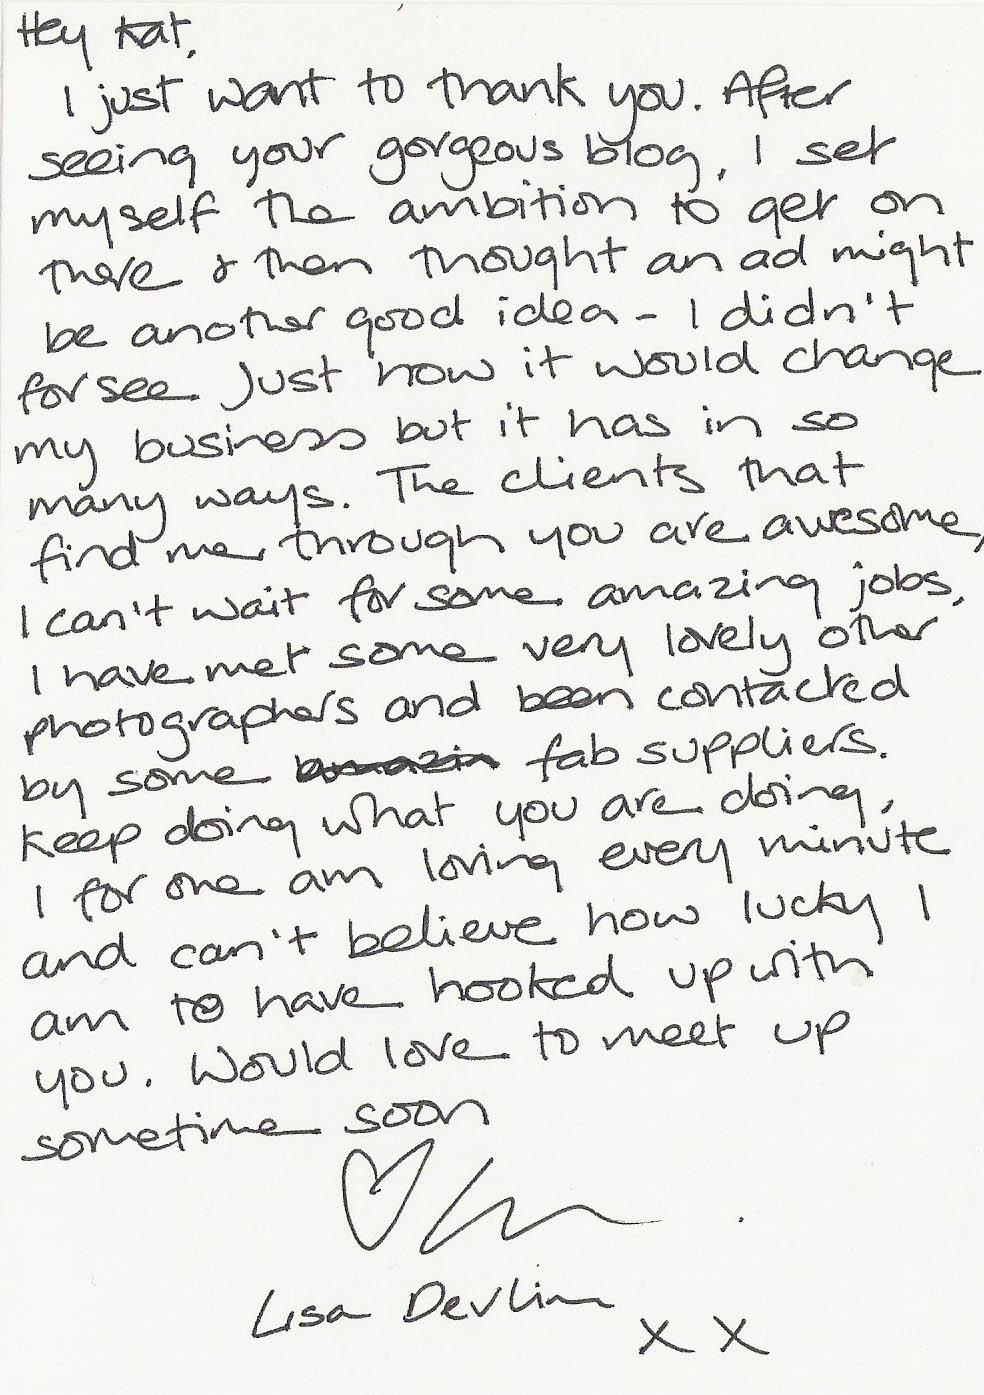 Hey Kat,
I just want to thank you. After
seeing your gorgeous blog, I set
myself the ambition to get on
there & then thought an ad might
be another good idea - I didn't
forsee just how it would change
my business but it has in so
many ways. The clients that
find me through you are awesome,
I can't wait for some amazing jobs,
I have met some very lovely other
photographers and been contacted
by some amazin fab suppliers.
Keep doing what you are doing,
I for one am loving every minute
and can't believe how lucky I
am to have hooked up with
you. Would love to meet up
sometime soon
Lisa Devlin
x x